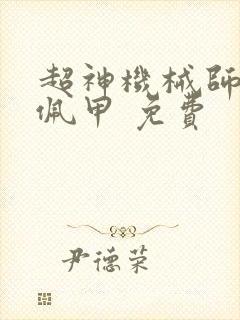 超神機械師
佩甲 免費
尹德荣